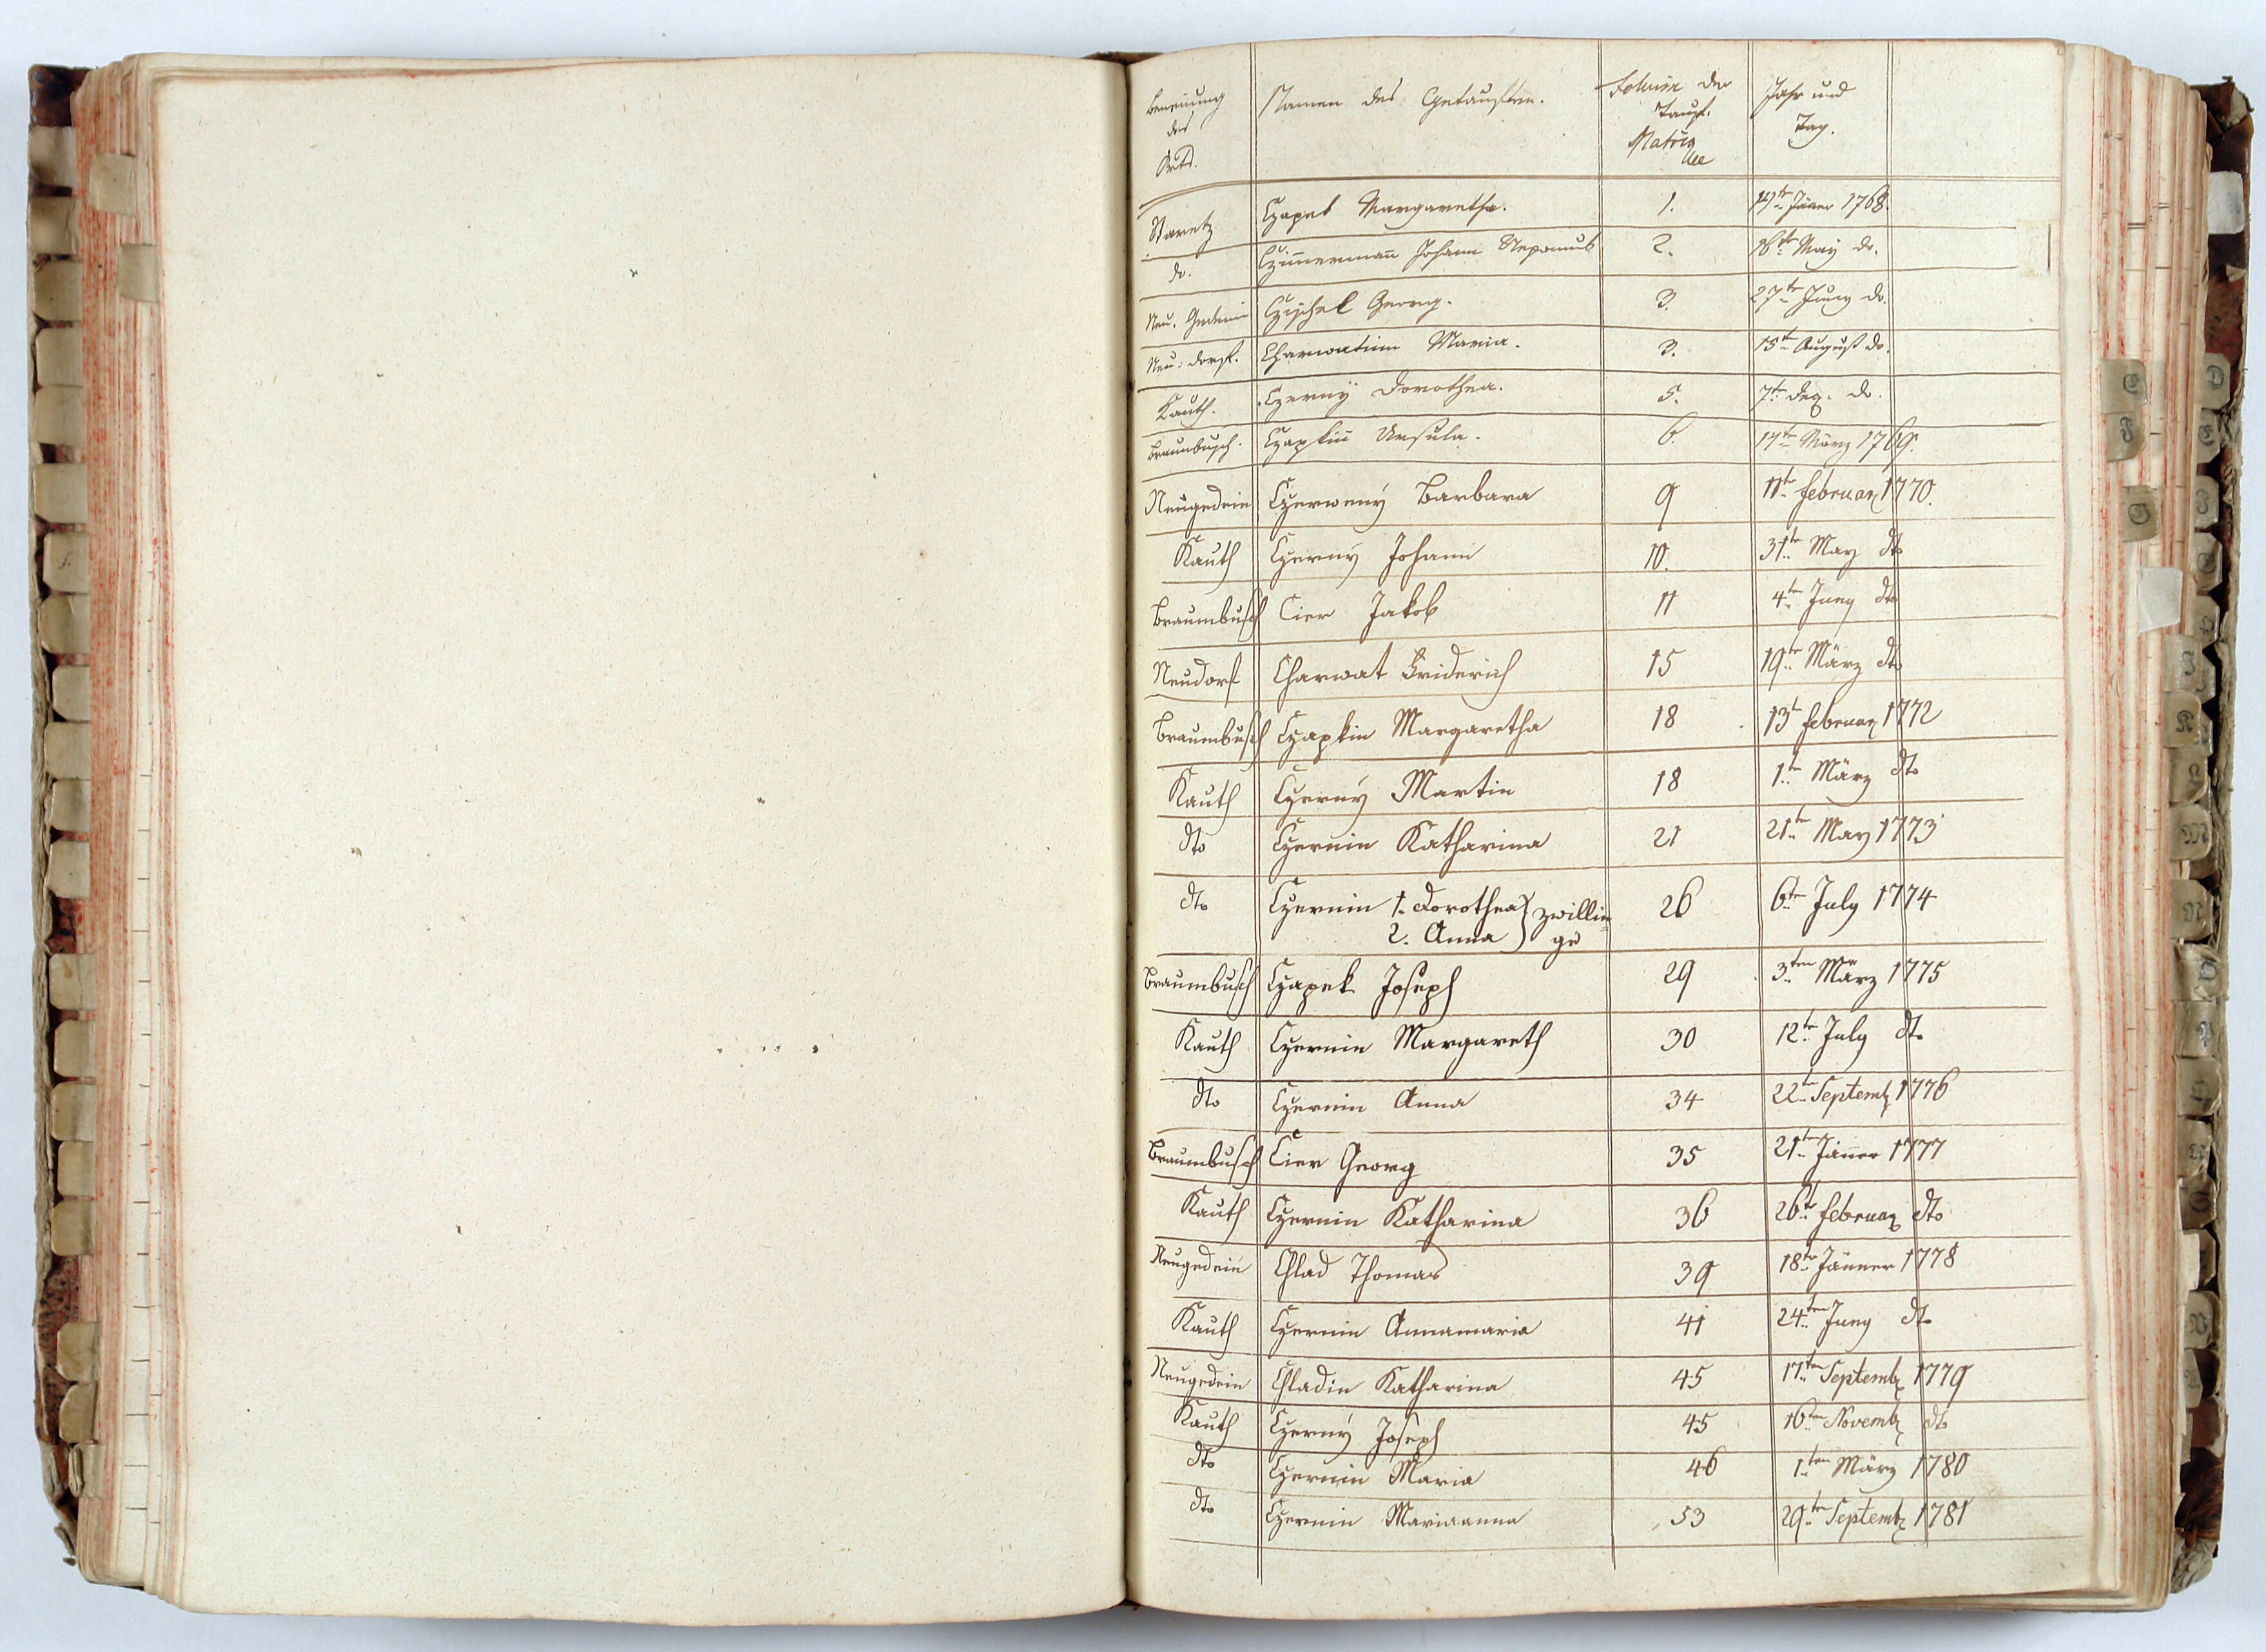 Benennung des Orts. Namen des Getauften. Folium der Tauf. Matrickel Jahr und Tag.
Staretz Czapek Margaretha. 1. 14te Jäner 1768.
do. Czimmermann Johann Nepomuk 2. 16te May do.
Neu. Gedein Czischek Georg. 3. 27te Juny do.
Neu: dorf. Charwatin Maria. 3. 15te August do.
Kauth. Czerny Dorothea. 5. 7te Dez. do.
Braunbusch. Czapkin Ursula. 6. 17te März 1769.
Neugedein Czerweny Barbara 9 11te februar 1770.
Kauth Czerny Johann 10. 31te May dto
Braumbusch Cier Jakob 11 4te Juny dto
Neudorf Charwat Friderich 15 19te März dto
Braumbusch Czapkin Margaretha 18 13te februar 1772
Kauth Czerny Martin 18 1te März dto
dto Czernin Katharina 21 21te May 1773
dto Czernin 1. Dorothea } zwillin= 26 6te July 1774
2. Anna } ge
Braumbusch Czapek Joseph 29 3ten März 1775
Kauth Czernin Margareth 30 12te July dto
dto Czernin Anna 34 22te Septemb 1776
Braumbusch Cier Georg 35 21ten Jäner 1777
Kauth Czernin Katharina 36 26te februar dto
Neugedein Chlad Thomas 39 18te Jänner 1778
Kauth Czernin Annamaria 41 24ten Juny dto
Neugedein Chladin Katharina 45 17ten Septemb 1779
Kauth Czerny Joseph 45 16ten Novemb dto
dto Czernin Maria 46 1ten März 1780
dto Czernin Mariaanna 53 29ten Septemb 1781